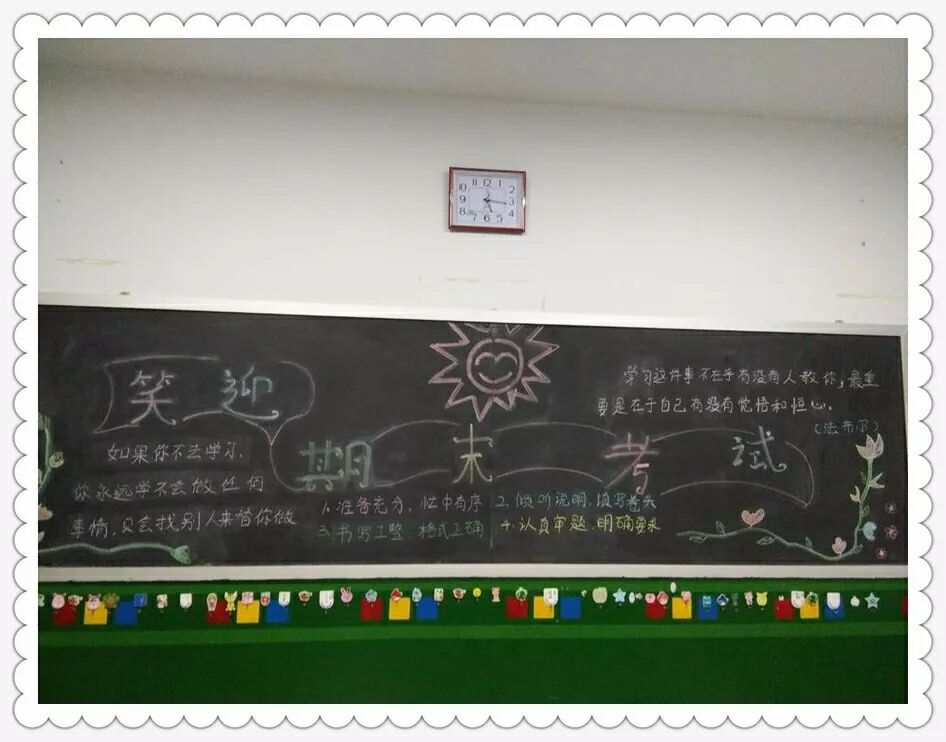 笑迎
期末考试
如果你不去学习,
你永远学不会做任何
事情,只会找别人来替你做
1.准备充分,忙中有序
2.倾听说明,填写卷头
3.书写工整,格式正确
4.认真审题,明确要求
学习这件事不在乎有没有人教你,最重
要是在于自己有没有觉悟和恒心。
(法布尔)
11 12 1
10 2
9 3
8 4
7 6 5